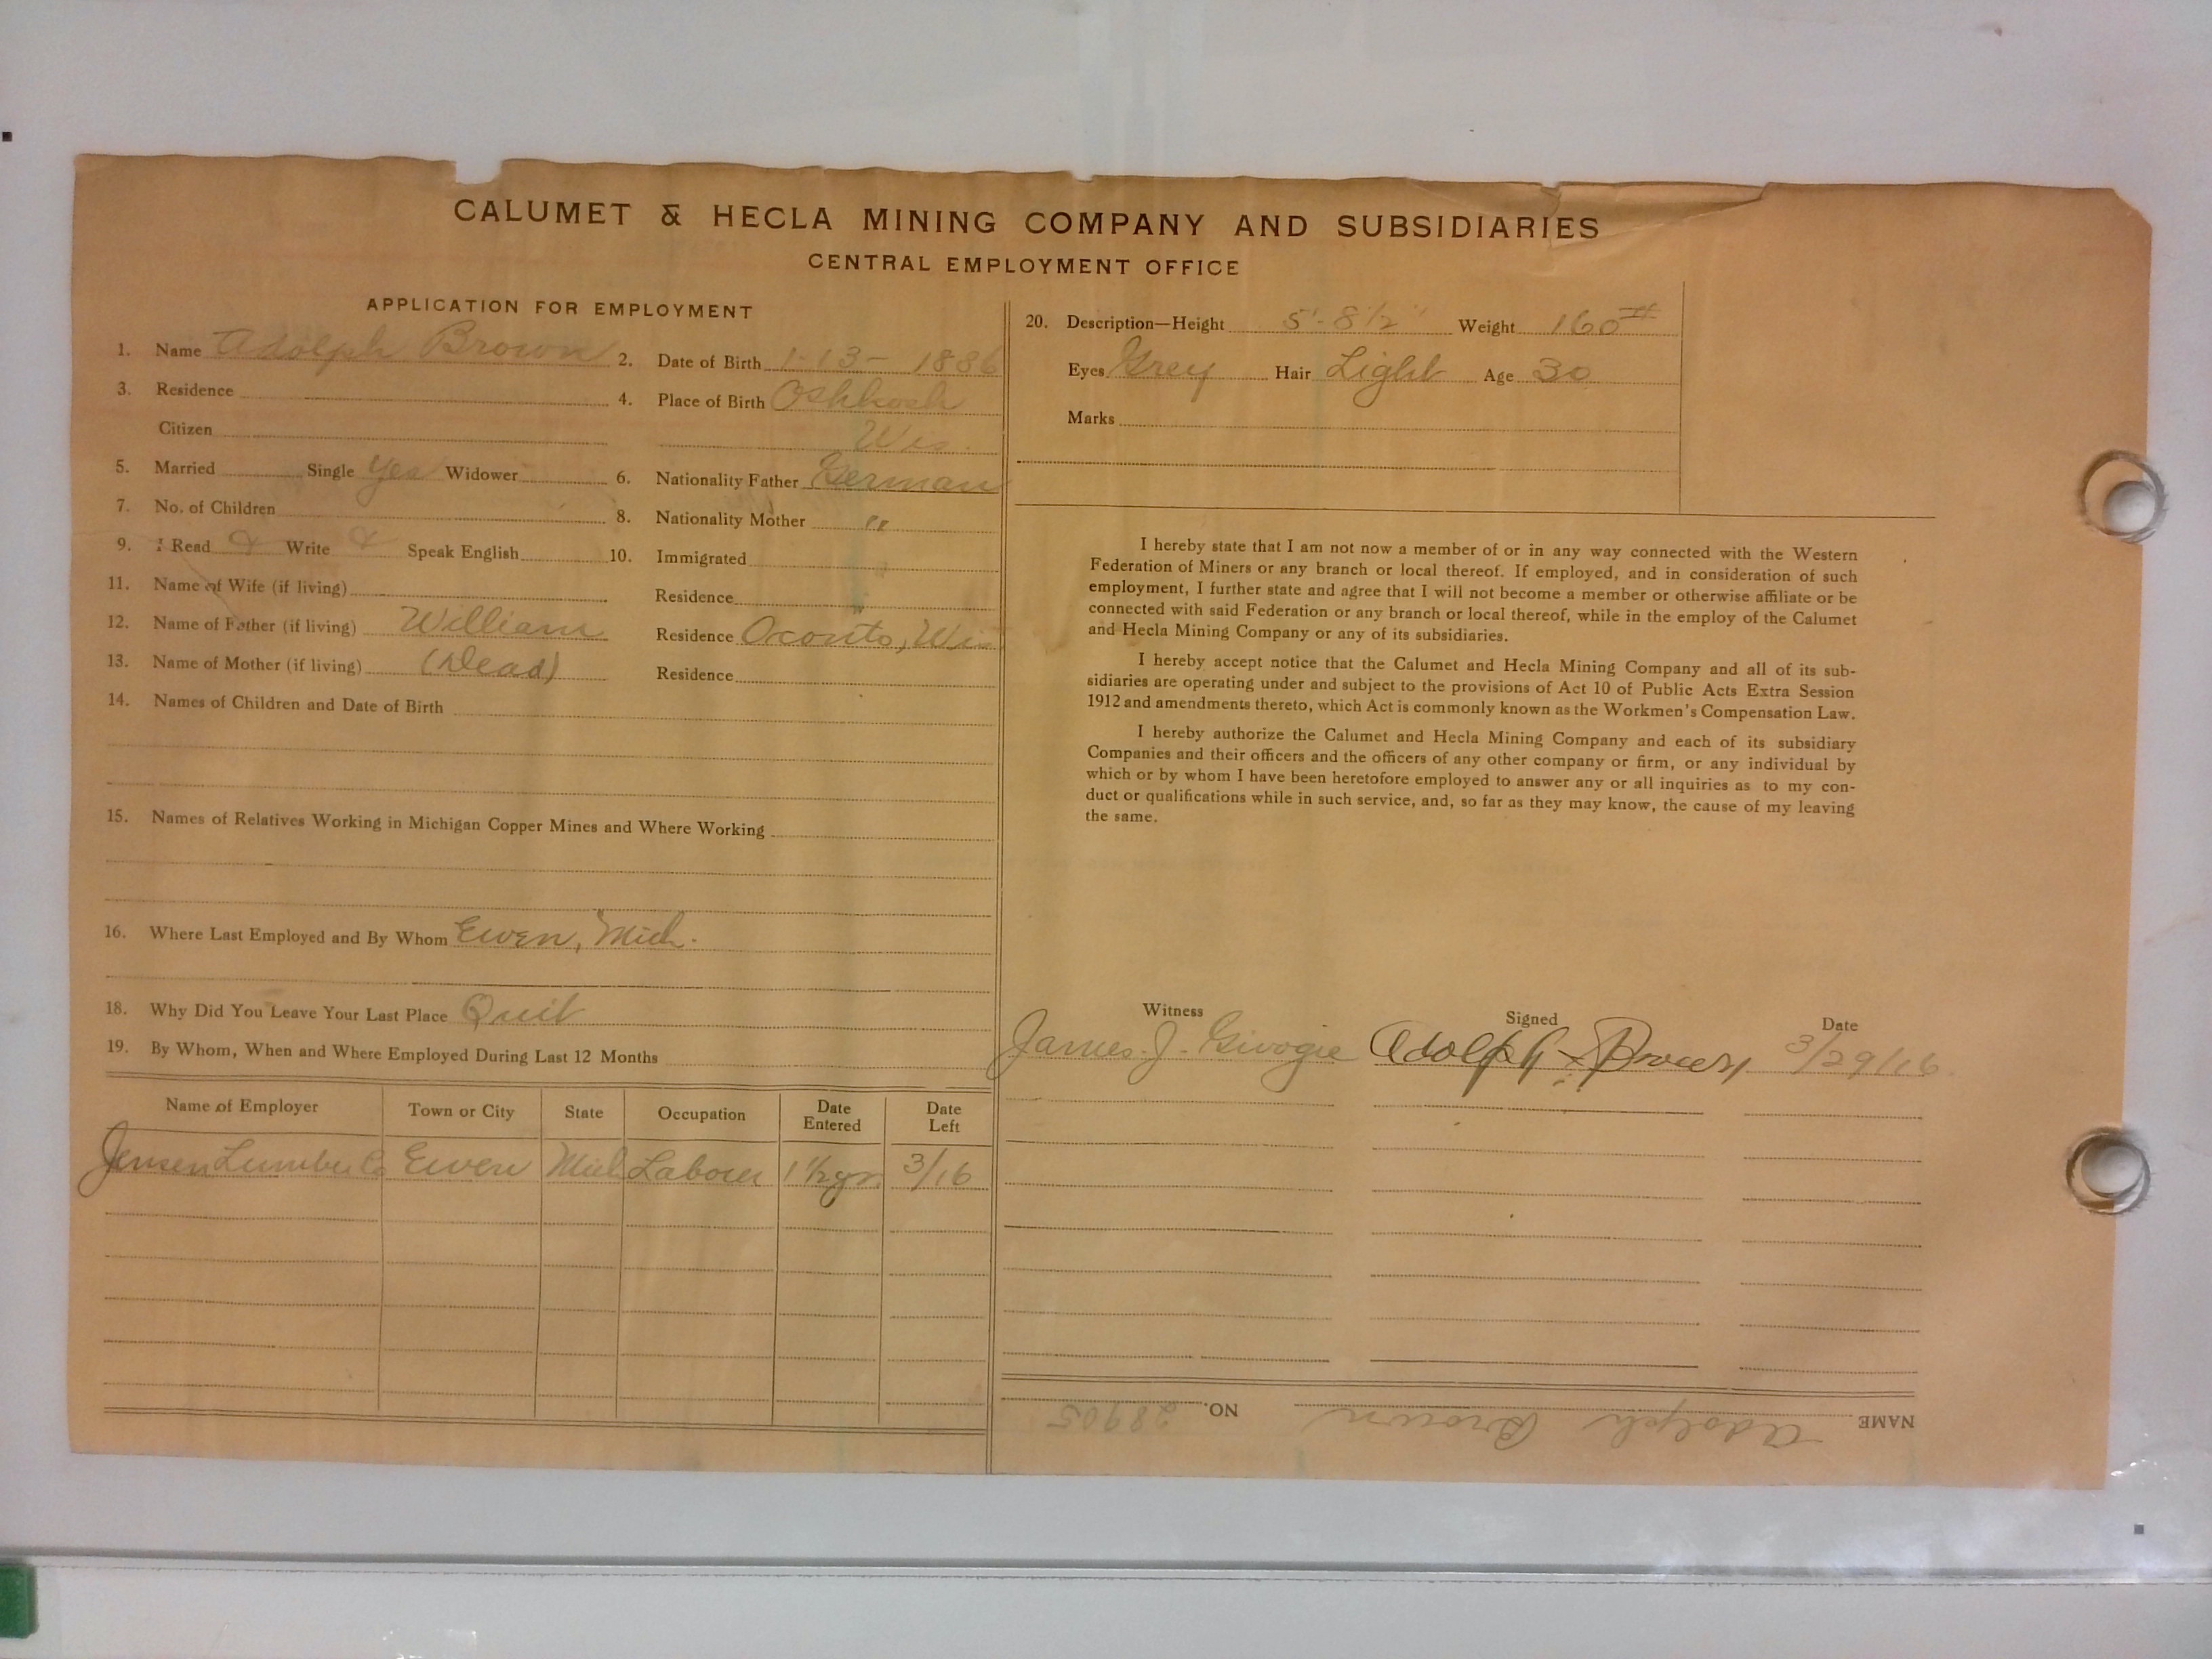 CALUMET & HECLA MINING COMPANY AND SUBSIDIARIES
CENTRAL EMPLOYMENT OFFICE
APPLICATION FOR EMPLOYMENT
1. Name Adolph Brown 2. Date of Birth 1-13-1886
3. Residence 4. Place of Birth Oshkosh
Citizen Wis.
5. Married Single Yes Widower 6. Nationality Father German
7. No. of Children 8. Nationality Mother "
9. Read Write Speak English 10. Immigrated
11. Name of Wife (if living) Residence
12. Name of Father (if living) William Residence Oconto, Wis
13. Name of Mother (if living) (Dead) Residence
14. Names of Children and Date of Birth
15. Names of Relatives Working in Michigan Copper Mines and Where Working
16. Where Last Employed and By Whom Ewen, Mich.
18. Why Did You Leave Your Last Place Quit
19. By Whom, When and Where Employed During Last 12 Months
Name of Employer Town or City State Occupation Date Entered Date Left
Jensen Lumber Co Ewen Mich Laborer 1 1/2 yr. 3/16
20. Description—Height 5'-8 1/2" Weight 160#
Eyes Grey Hair Light Age 30
Marks
I hereby state that I am not now a member of or in any way connected with the Western
Federation of Miners or any branch or local thereof. If employed, and in consideration of such
employment, I further state and agree that I will not become a member or otherwise affiliate or be
connected with said Federation or any branch or local thereof, while in the employ of the Calumet
and Hecla Mining Company or any of its subsidiaries.
I hereby accept notice that the Calumet and Hecla Mining Company and all of its sub-
sidiaries are operating under and subject to the provisions of Act 10 of Public Acts Extra Session
1912 and amendments thereto, which Act is commonly known as the Workmen's Compensation Law.
I hereby authorize the Calumet and Hecla Mining Company and each of its subsidiary
Companies and their officers and the officers of any other company or firm, or any individual by
which or by whom I have been heretofore employed to answer any or all inquiries as to my con-
duct or qualifications while in such service, and, so far as they may know, the cause of my leaving
the same.
Witness Signed Date
James J. Adolph Brown 3/29/16
NAME Adolph Brown NO. 28905